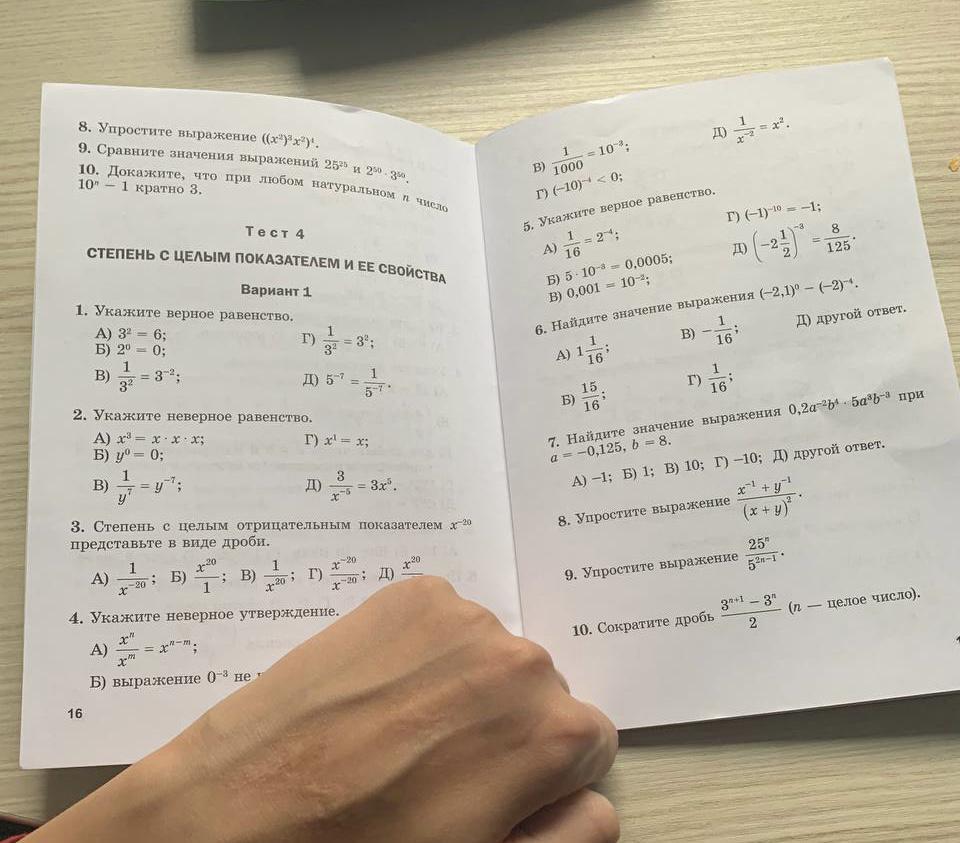 8. Упростите выражение ((x²)³x²)⁴.
9. Сравните значения выражений 25²⁵ и 2⁵⁰ · 3⁵⁰.
10. Докажите, что при любом натуральном n число
10ⁿ − 1 кратно 3.
Тест 4
СТЕПЕНЬ С ЦЕЛЫМ ПОКАЗАТЕЛЕМ И ЕЕ СВОЙСТВА
Вариант 1
1. Укажите верное равенство.
А) 3² = 6;
Б) 2⁰ = 0;
В) 1/3² = 3⁻²;
Г) 1/3² = 3²;
Д) 5⁻⁷ = 1/5⁻⁷.
2. Укажите неверное равенство.
А) x³ = x · x · x;
Б) y⁰ = 0;
В) 1/y⁷ = y⁻⁷;
Г) x¹ = x;
Д) 3/x⁻⁵ = 3x⁵.
3. Степень с целым отрицательным показателем x⁻²⁰
представьте в виде дроби.
А) 1/x⁻²⁰; Б) x²⁰/1; В) 1/x²⁰; Г) x⁻²⁰/x⁻²⁰; Д) x²⁰
4. Укажите неверное утверждение.
А) xⁿ/xᵐ = xⁿ⁻ᵐ;
Б) выражение 0⁻³ не
16
В) 1/1000 = 10⁻³;
Г) (−10)⁻⁴ < 0;
Д) 1/x⁻² = x².
5. Укажите верное равенство.
А) 1/16 = 2⁻⁴;
Б) 5 · 10⁻³ = 0,0005;
В) 0,001 = 10⁻²;
Г) (−1)⁻¹⁰ = −1;
Д) (−2 1/2)⁻³ = 8/125.
6. Найдите значение выражения (−2,1)⁰ − (−2)⁻⁴.
А) 1 1/16;
Б) 15/16;
В) −1/16;
Г) 1/16;
Д) другой ответ.
7. Найдите значение выражения 0,2a⁻²b⁴ · 5a³b⁻³ при
a = −0,125, b = 8.
А) −1; Б) 1; В) 10; Г) −10; Д) другой ответ.
8. Упростите выражение (x⁻¹ + y⁻¹)/(x + y)².
9. Упростите выражение 25ⁿ/5²ⁿ⁻¹.
10. Сократите дробь (3ⁿ⁺¹ − 3ⁿ)/2 (n — целое число).